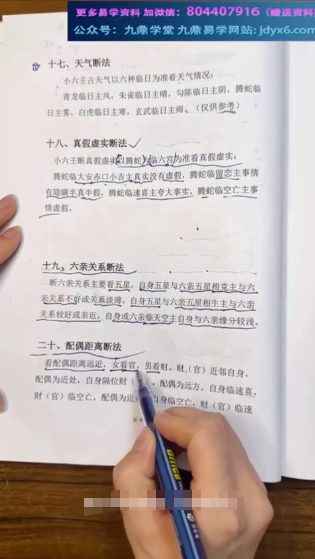 更多易学资料 加微信：804407916（赠送资料）
公众号：九鼎学堂 九鼎易学网站: jdyx6.com
十七、天气断法
小六壬占天气以六神临日为准看天气情况：
青龙临日主风，朱雀临日主晴，勾陈临日主阴，腾蛇临
日主雾，白虎临日主寒，玄武临日主雨。（仅供参考）
十八、真假虚实断法
小六壬断真假虚实以腾蛇临六宫为准看真假虚实：
腾蛇临大安赤口小吉主真实没有虚假，腾蛇临留恋主事
有隐瞒半真半假，腾蛇临速喜主夸大事实，腾蛇临空亡主事
情虚假。
十九、六亲关系断法
断六亲关系主要看五星，自身五星与六亲五星相克主与六
亲关系不好或关系淡薄，自身五星与六亲五星相生主与六亲
关系较好或亲近，自身或六亲临天空主自身与六亲缘分较浅。
二十、配偶距离断法
看配偶距离远近，女看官，男看财。财（官）近邻自身，
配偶为近处，自身隔位财（），配偶为远方。自身临速喜，
财（官）临空亡，配偶为近 自身临空亡，财（官）临速